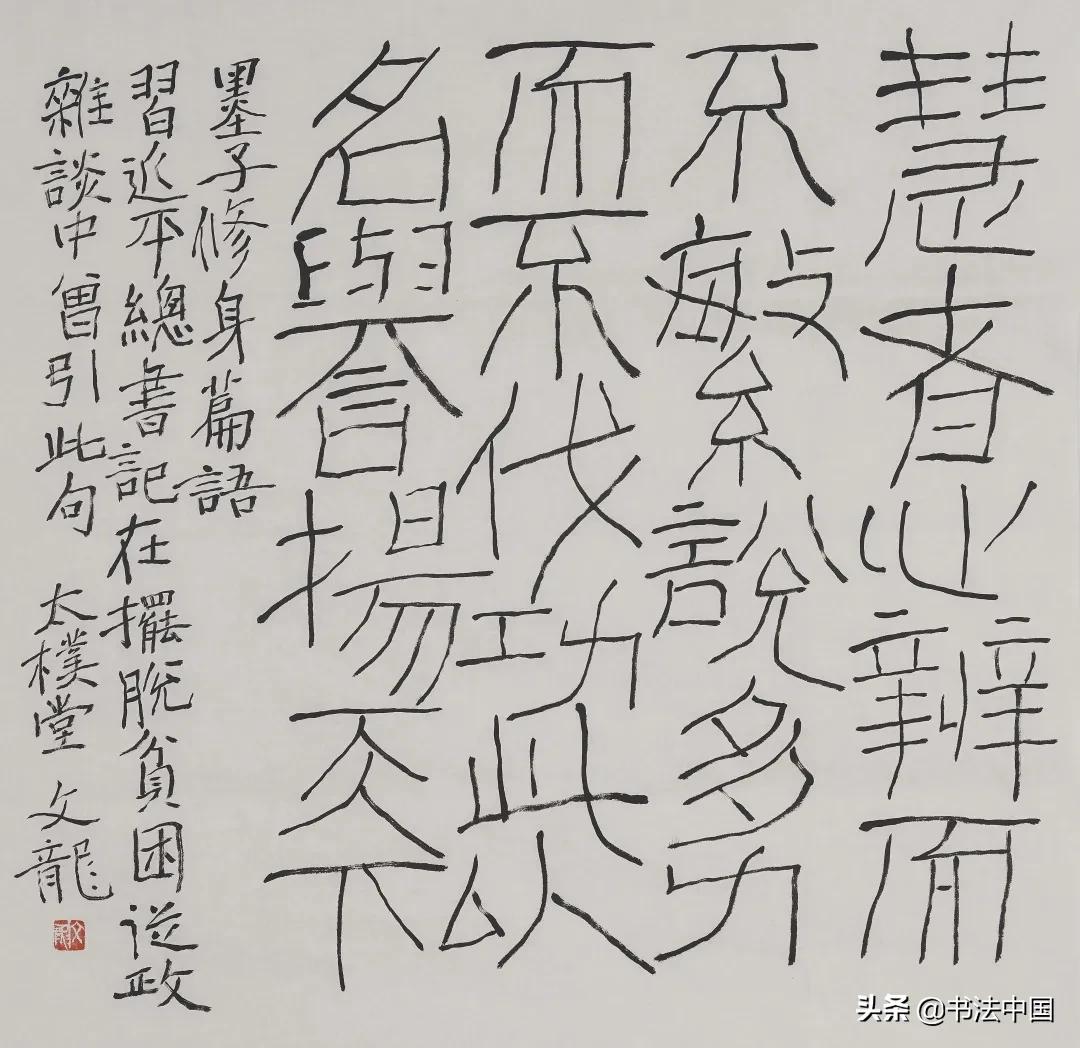 慧者心辨而
不繁說多力
而不伐功此以
名譽揚天下
墨子修身篇語
習近平總書記在擺脫貧困從政
雜談中曾引此句 太樸堂 文龍
头条 @书法中国